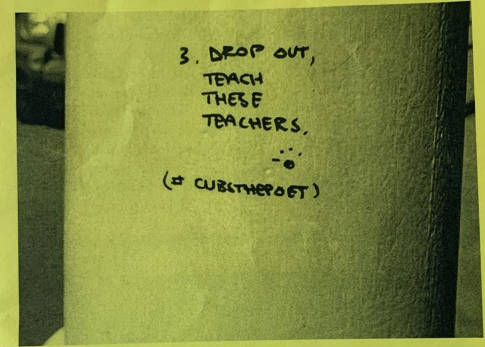 3. DROP OUT,
TEACH
THESE
TEACHERS.
(# CUBSTHEPOET)